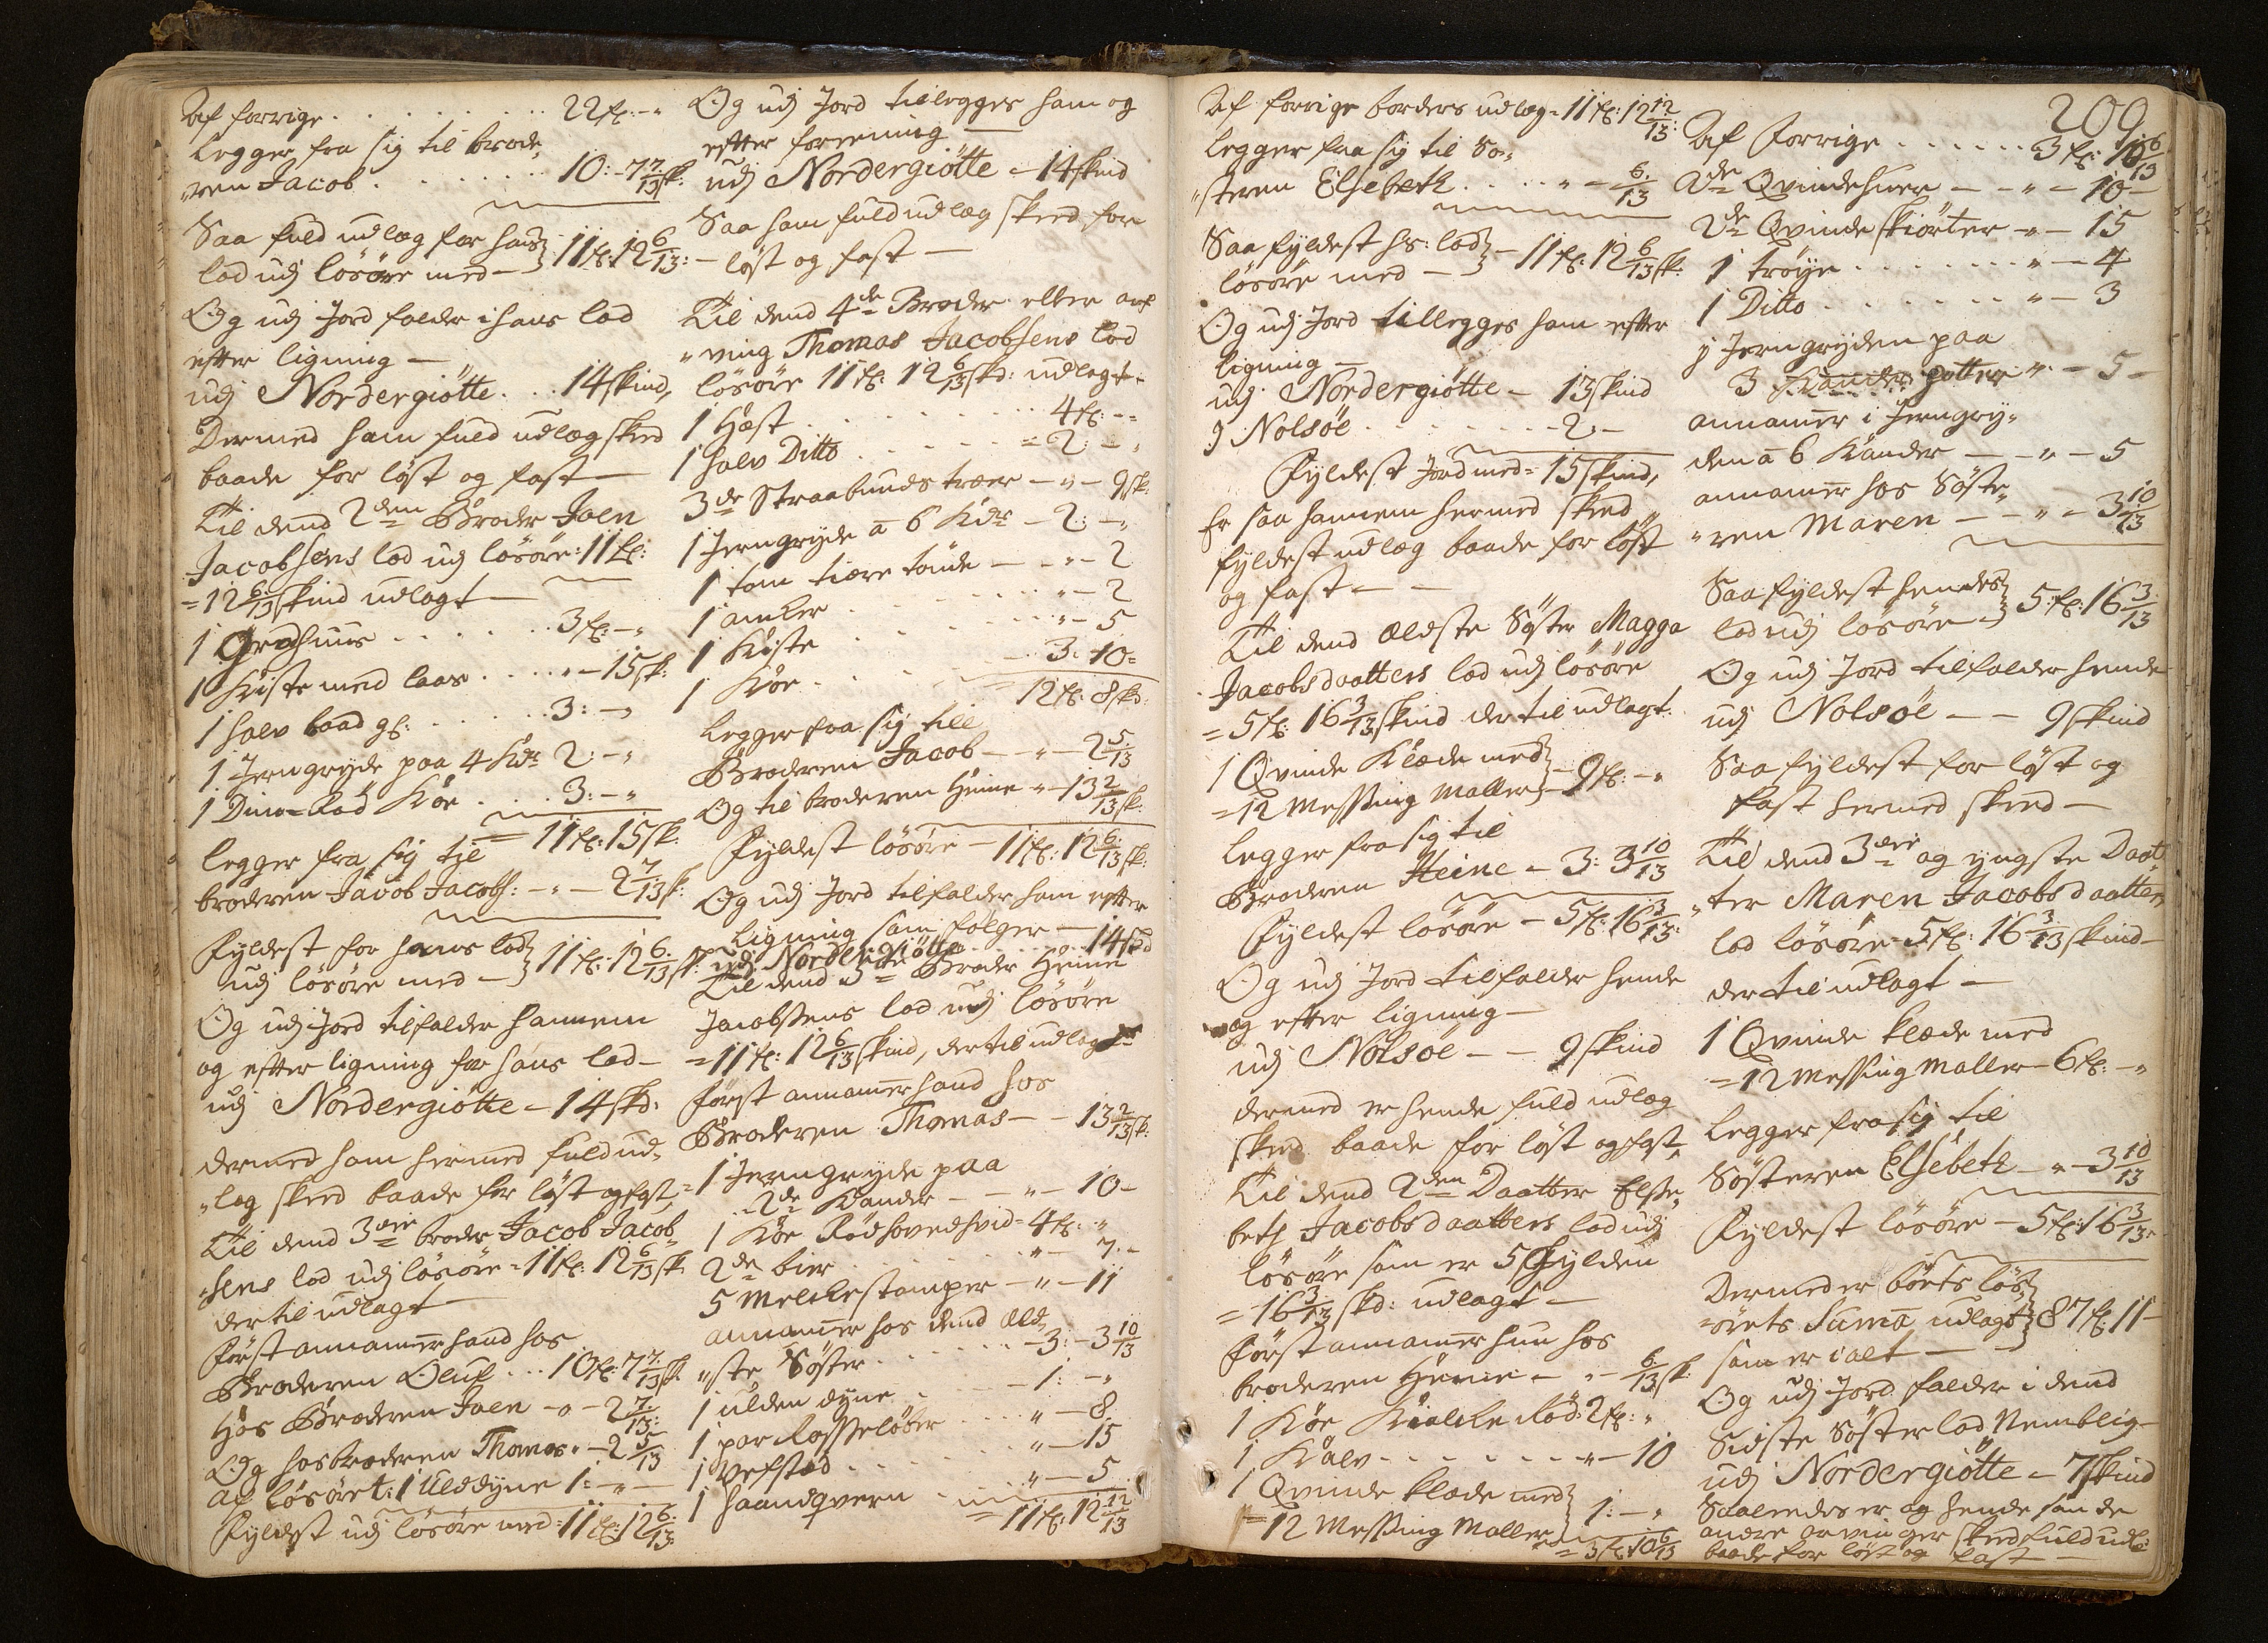 Af forrige . . . . . . 22 fl: - "
legger fra sig til brode„
„ren Jacob . . . . . 10: - 7 7/13 sk:
Saa fuld udlæg for hans
lod udj lösöre med — } 11 fl: 12 6/13:
Og udj Jord falder i hans lod
efter ligning —
udj Nordergiötte . . 14 skind,
Dermed ham fuld udlæg skeed
baade for löst og fast —
Til dend 2den Broder Joen
Jacobsens lod udj lösöre: 11 fl:
= 12 6/13 skind udlagt —
1 Grohuus . . . . . . 3 fl: - "
1 Kiste med laas . . . . " - 15 sk:
1 halv baad gl: . . . . . 3: - "
1 Jerngryde paa 4 Kdr 2: - "
1 Kör . . . 3: - "
= 11 fl: 15 sk:
legger fra sig til
broderen Jacob Jacobs: - " - 2 7/13 sk:
Fyldest for hans lod
udj lösöre med — } 11 fl: 12 6/13 sk:
Og udj Jord tilfalder hannem
og efter ligning for hans lod —
udj Nordergiötte — 14 skd:
dermed ham hermed fuld ud„
„læg skeed baade for löst og fast,
Til dend 3die broder Jacob Jacob„
„sens lod udj lösöre = 11 fl: 12 6/13 sk:
der til udlagt —
först annamer hand hos
Broderen Oluf . . . 10 fl: 7 7/13 sk:
Hos Broderen Joen - " - 2 7/13:
Og hos broderen Thomas " - 2 5/13
af lösöret: 1 Ulddyne 1: - " -
Fyldest udj lösöre med = 11 fl: 12 6/13:
Og udj Jord tillegges ham og
efter foreening —
udj Nordergiötte — 14 skind
Saa ham fuld udlæg skeed for
— löst og fast —
Til dend 4de Broder eller arf
„ving Thomas Jacobsens lod
lösöre 11 fl: 12 6/13 skd: udlagt.
1 Hæst . . . . . . . . 4 fl: - "
1 halv Ditto . . . . . = 2: - "
3de Straabunds træer — " — 9 sk:
1 Jerngryde a 6 Kdr — 2: - "
1 tom tiære tönde — - " - 2
1 anker . . . . . . . " - 2
1 Kiste . . . . . . . " - 5
1 Kör . . . . . . . 3: 10 =
= 12 fl: 8 skd:
legger fra sig till
Broderen Jacob — " — 2 5/13
Og til broderen Heine " - 13 2/13 sk:
Fyldest lösöre — 11 fl: 12 6/13 sk:
Og udj Jord tilfalder ham efter
ligning som fölger —
udj Nordergiötte . . . . . 14 skd
Til dend 5te Broder Heine
Jacobsens lod udj lösöre
= 11 fl: 12 6/13 skind, der til udlagt
först annamer hand hos
Broderen Thomas — - 13 2/13 sk:
= 1 Jerngryde paa
2de Kander — - " - 10 -
1 Kör Rödhovedhvid = 4 fl: "
2de bier . . . . . . . " - 7 -
5 Melckestamper — " - 11
annamer hos dend æld„
„ste Söster . . . . . - 3: - 3 10/13
1 ulden dyne . . . . - 1: - "
1 par . . . " - 8
1 Vefstad . . . . . . . " - 15
1 haandqvern . . . . . . " - 5
= 11 fl: 12 12/13
200
Af forrige borders udlæg = 11 fl: 12 12/13:
legger fra sig til Sö„
„steren Elsebeth . . . . " - 6/13
Saa fyldest hs: lod
lösöre med — } — 11 fl: 12 6/13 sk:
Og udj Jord tillegges ham efter
ligning —
udj Nordergiötte — 13 skind
J Nolsöe . . . . . . . - 2: -
Fyldest Jord med = 15 skind,
Er saa hannem hermed skeed
fyldest udlæg baade for löst
og fast — —
Til dend Ældste Söster Magga
Jacobsdaatters lod udj lösöre
= 5 fl: 16 3/13 skind der til udlagt.
1 Qvinde Klæde med
= 12 Messing Maller } — 9 fl: - "
legger fra sig til
Broderen Heine — 3: 3 10/13
Fyldest lösöre — 5 fl: 16 3/13:
Og udj Jord tilfalder hende
og efter ligning —
udj Nolsöe — — 9 skind
dermed er hende fuld udlæg
skeed baade for löst og fast,
Til dend 2den Daatter Else„
beth Jacobsdaatters lod udj
lösöre som er 5 Gylden
= 16 3/13 skd: udlagt —
först annamer hun hos
broderen Heine — " - 6/13 sk:
1 Kör Röd: 2 fl: "
1 Kalv . . . . . . . - " - 10
1 Qvinde klæde med
= 12 Messing Maller } 1: - "
= 3 fl: 10 6/13
Af forrige . . . . . . 3 fl: 10 6/13
2de Qvindehuer — - " - 10 -
2de Qvinde skiörter — " - 15
1 tröye . . . . . . . . " - 4
1 Ditto . . . . . . . . " - 3
j Jerngryden paa
3 potter " - 5 -
annamer i Jerngry„
den a 6 Kander — - " - 5
annamer hos Söste„
„ren Maren — - " - 3 10/13
Saa fyldest hendes
lod udj lösöre — } 5 fl: 16 3/13
Og udj Jord tilfalder hende
udj Nolsöe — — 9 skind
Saa fyldest for löst og
fast hermed skeed —
Til dend 3die og yngste Daat„
„ter Maren Jacobsdaatters
lod lösöre = 5 fl: 16 3/13 skind —
der til udlagt —
1 Qvinde klæde med
= 12 Messing Maller — 6 fl: - "
legger fra sig til
Sösteren Elsebeth — " - 3 10/13
Fyldest lösöre — 5 fl: 16 3/13 "
Dermed er böets lös„
„örets Suma udlagt } 87 fl: 11 -
som er i alt —
Og udj Jord falder i dend
Sidste Söster lod Nemblig —
udj Nordergiötte = 7 skind
Saaleedes er og hende som de
andre arvinger skeed fuld udl:
baade for löst og fast —